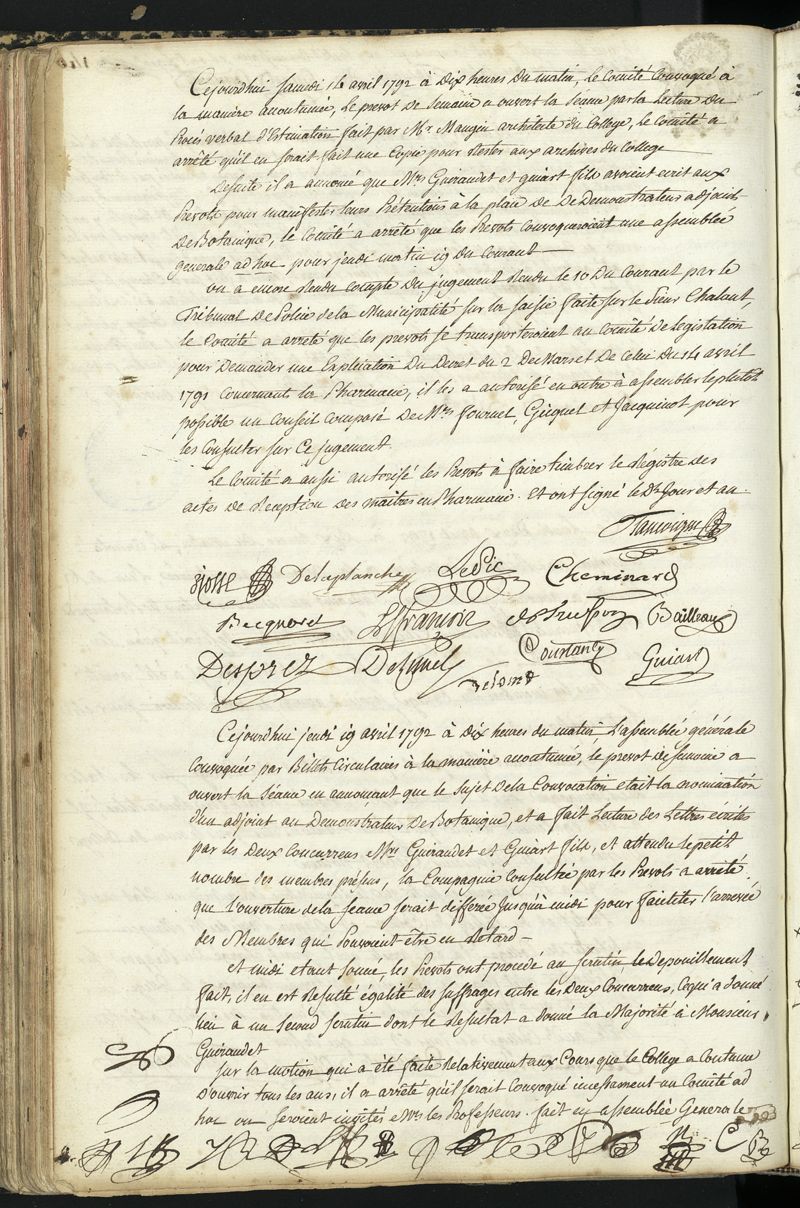 Cejourdhui Samedi 14 avril 1792 à Dix heures du matin, Le Comité Convoqué à
la maniere accoutumée, Le prevot De Semaine a ouvert la Séance par la Lecture du
Procés verbal d'Estimation fait par Mr. Maugin architecte du College, le Comité a
arrêté qu'il en serait fait une Copie pour Rester aux archives du College
Desuite il a annoncé que Mrs Guéraudet et guiart fils avoient ecrit aux
Prevots pour manifester leurs Prétentions a la place De Demonstrateur adjoint
De Botanique, le Comité a arrêté que les Prevots Convoqueroient une assemblée
generale ad hoc pour jeudi matin 19 du Courant —
on a encore Rendu Compte Du jugement Rendu le 10 Du Courant par le
Tribunal De Police de la Municipalité sur la saisie faite sur le Sieur Chalaut,
le Comité a arreté que les prevots se transporteroient au Comité De legislation
pour Demander une Explication Du Decret du 2 De Mars et De Celui Du 14 avril
1791 Concernant la Pharmacie, il les a autorisé en outre à assembler le plutot
possible un Conseil Composé De Mrs fournel, Gicquel et Jacquinot pour
les Consulter sur Ce jugement.
Le Comité a aussi autorisé les Prevots à faire timbrer le Registre des
actes de Reception des maitres en Pharmacie. Et ont signé le Dt Jour et an.
Trancoigne
Josse Delaplanche LePic Cheminard
Becqueret Bailleau
Desprez Delunel Coutant Guiart
Cejourdhui jeudi 19 avril 1792 à Dix heures du matin L'assemblée générale
Convoquée par Billets Circulaires à la maniere accoutumée, le prevot De semaine a
ouvert la Séance en annoncant que le sujet De la Convocation etait la nomination
d'un adjoint au Demonstrateur De Botanique, et a fait Lecture des Lettres écrites
par les Deux Concurrens Mrs Guéraudet et Guiart fils, et attendu le petit
nombre des membres présens, la Compagnie Consultée par les Prevots a arrêté
que l'ouverture de la seance serait differée jusqu'à midi pour faciliter l'arrivée
des Membres qui Pouvoient être en Retard —
et midi etant sonné, les Prevots ont procedé au scrutin, le Depouillement
fait, il en est Resulté égalité des suffrages entre les Deux Concurrens, Ce qui a donné
lieu à un Second scrutin dont le Resultat a donné la Majorité à Monsieur
Guéraudet
sur la motion qui a été faite Relativement aux Cours que le College a Coutume
D'ouvrir tous les ans, il a arrêté qu'il serait Convoqué incessament un Comité ad
hoc ou seroient invités Mrs les Professeurs. fait en assemblée Generale